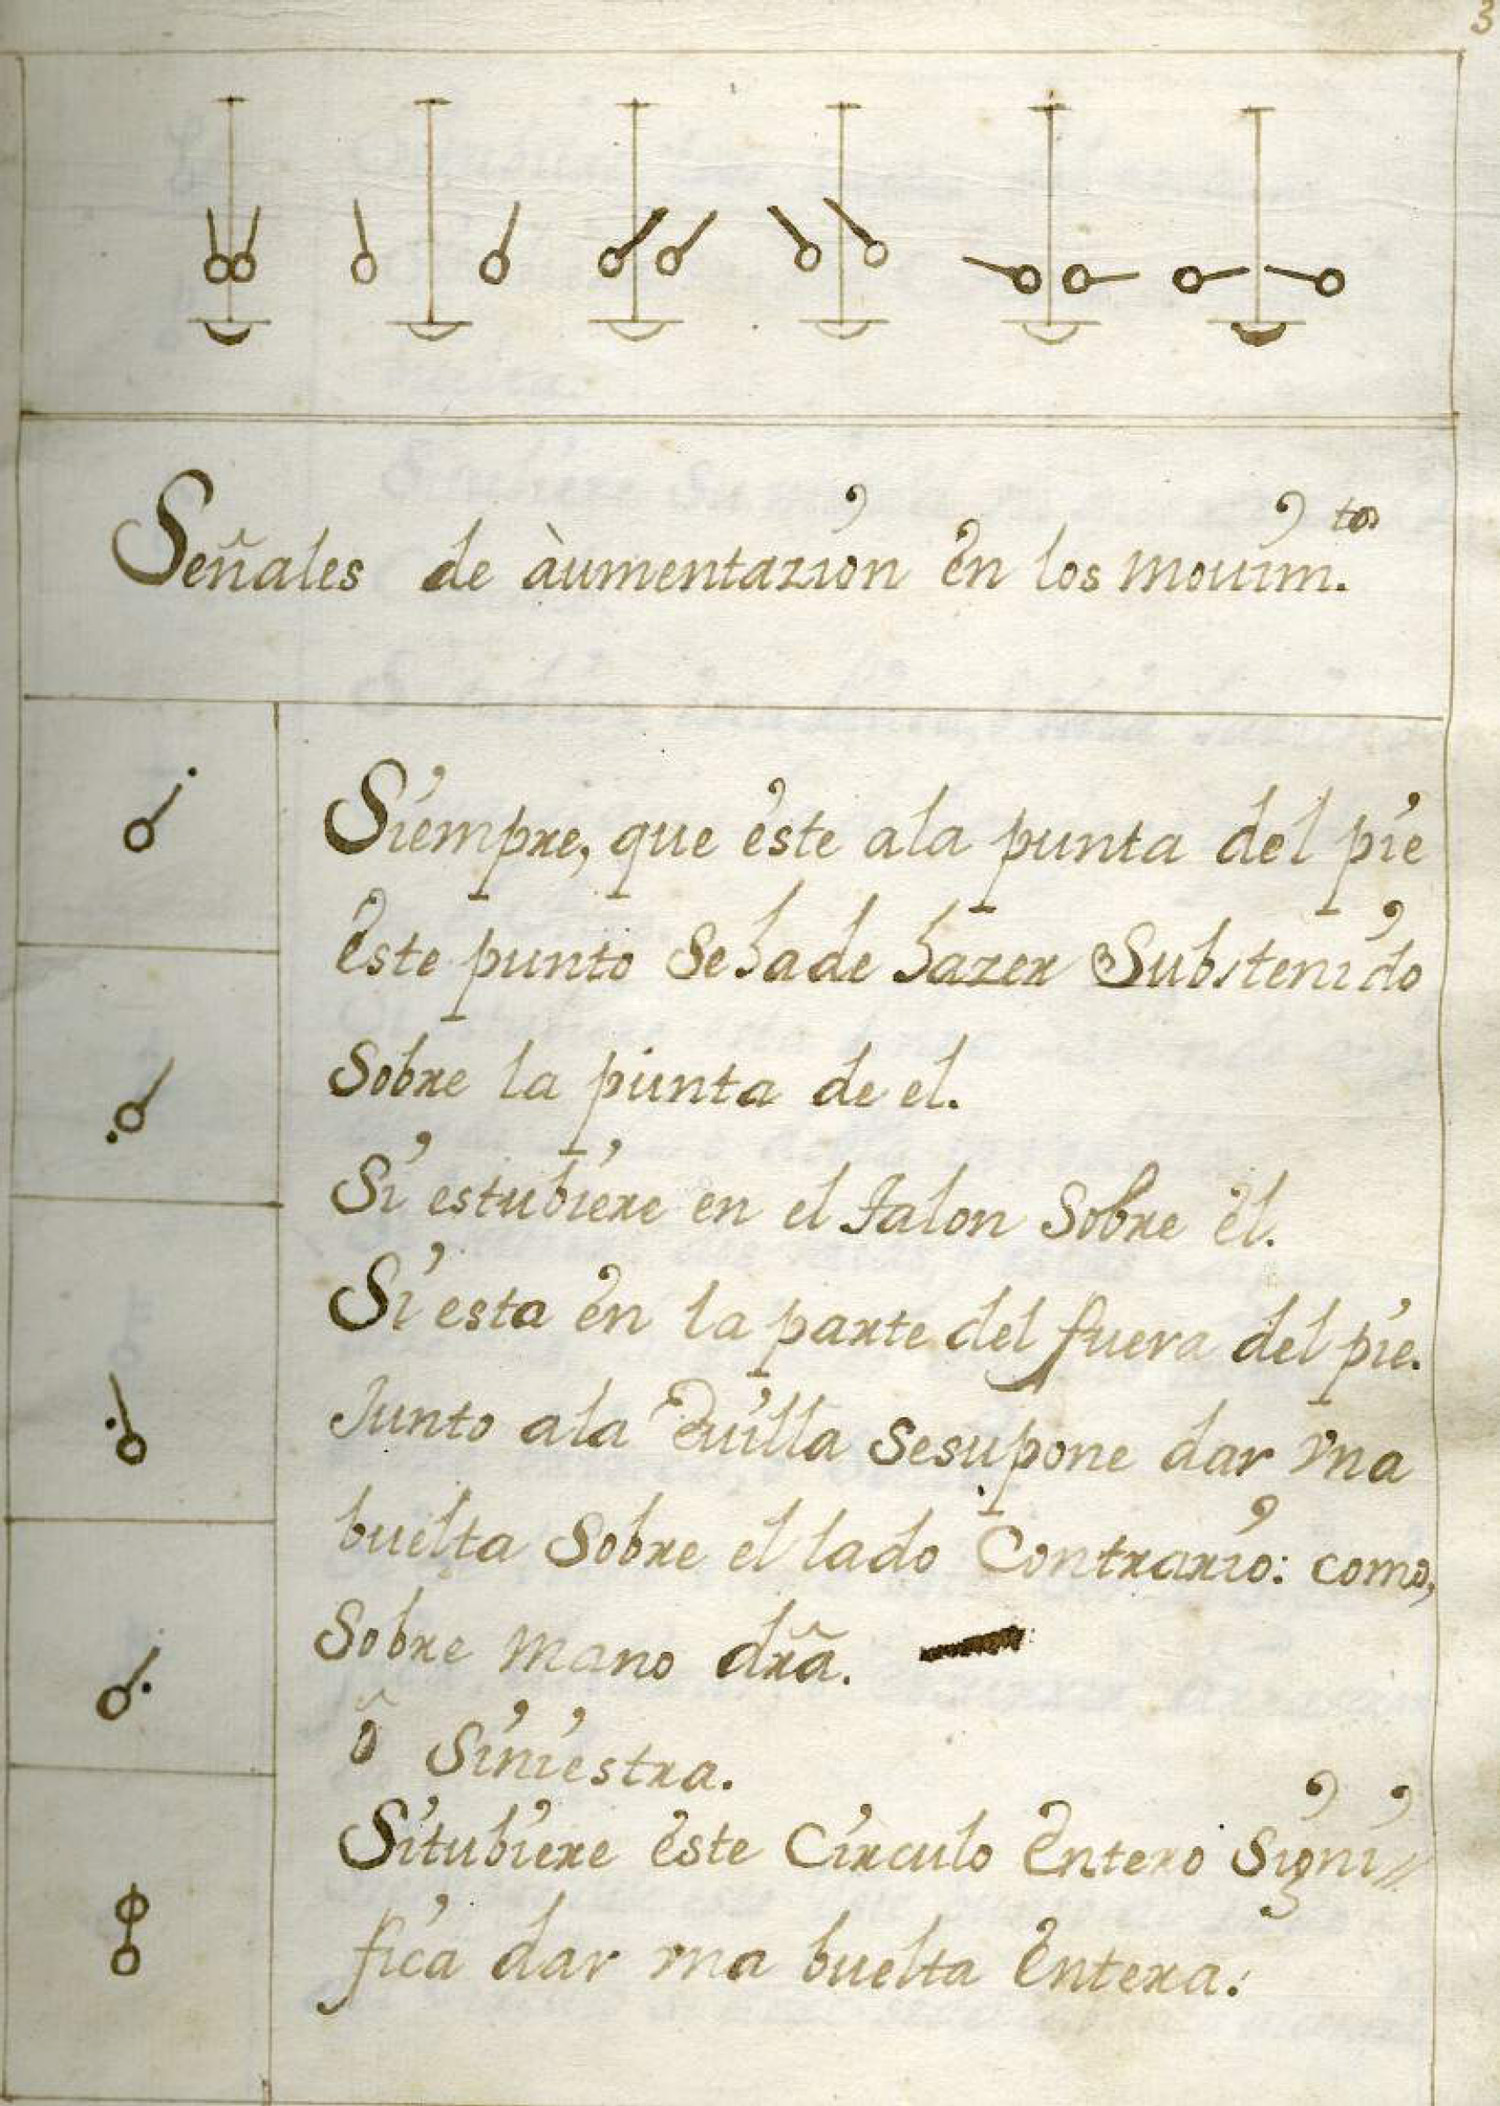 3
Señales de àumentazión ên los mouim.tos
Siempre, que éste ala punta del píe
Éste punto se ha de hazer Substenido
Sobre la punta de el.
Sí estubíere en el Talon Sobre él.
Sí esta én la parte del fuera del píe.
Junto ala Quilla se supone dar vna
buelta Sobre el lado Contrarío: como,
Sobre mano dr̃a.
ô Síníestra.
Situbíere éste Círculo Entero Signi//
fíca dar vna buelta Entera.